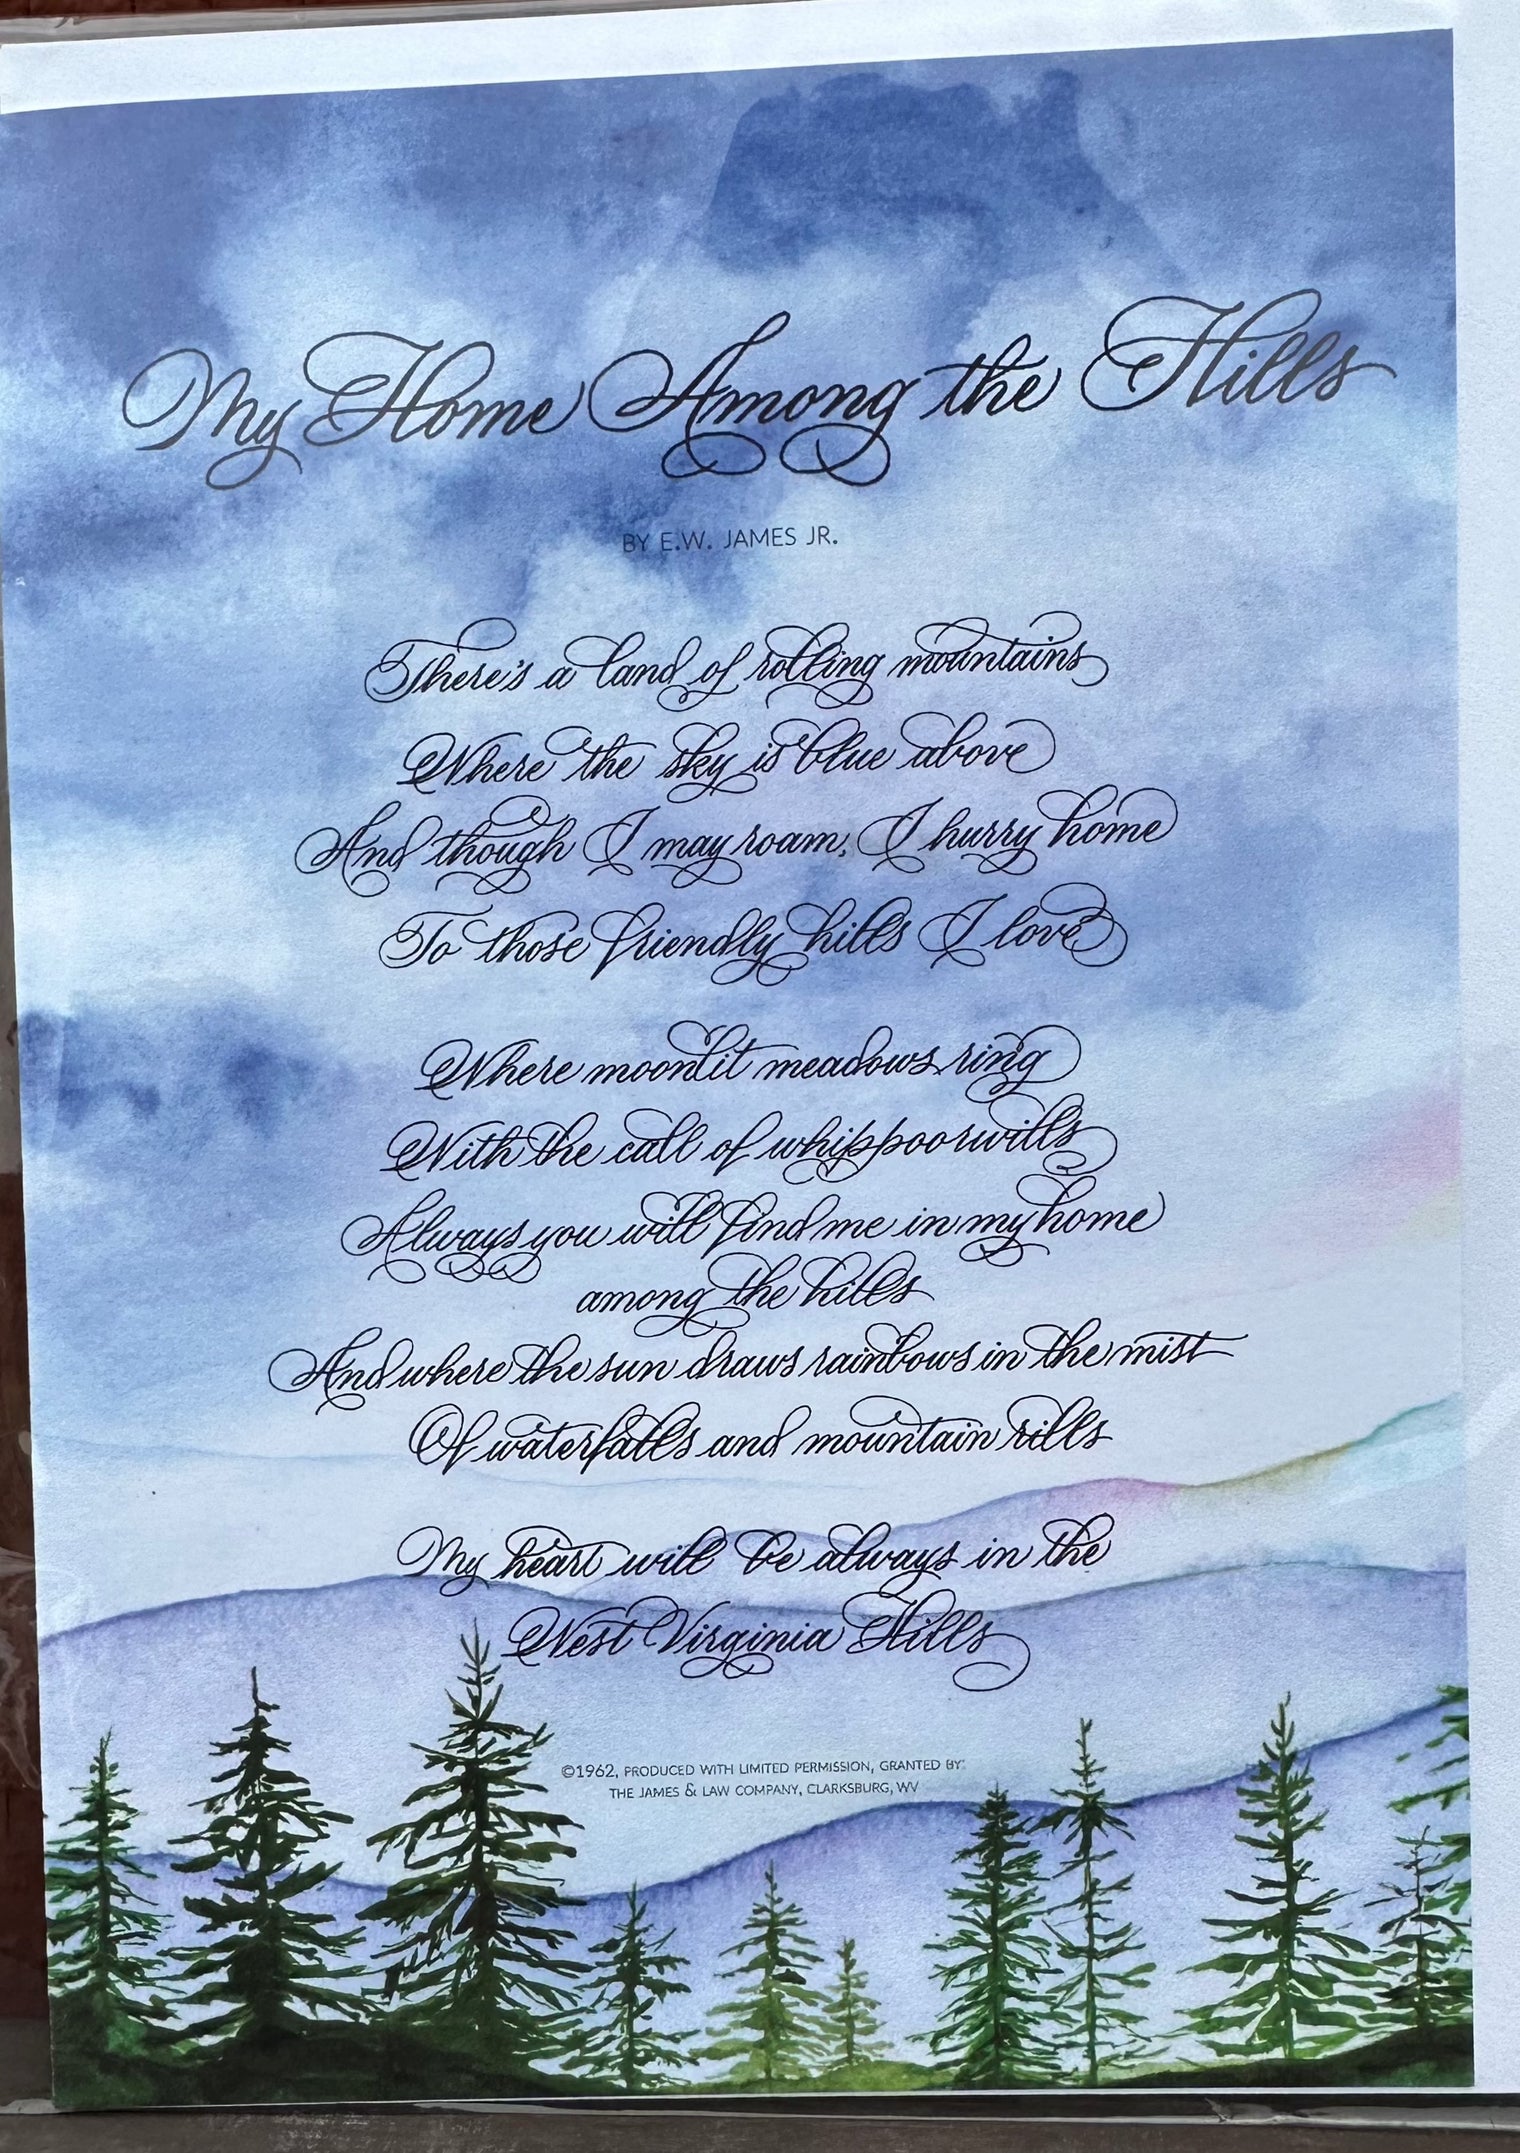 My Home Among the Hills
BY E.W. JAMES JR.
There's a land of rolling mountains
Where the sky is blue above
And though I may roam, I hurry home
To those friendly hills I love
Where moonlit meadows ring
With the call of whippoorwills
Always you will find me in my home
among the hills
And where the sun draws rainbows in the mist
Of waterfalls and mountain rills
My heart will be always in the
West Virginia Hills
©1962, PRODUCED WITH LIMITED PERMISSION, GRANTED BY
THE JAMES & LAW COMPANY, CLARKSBURG, WV